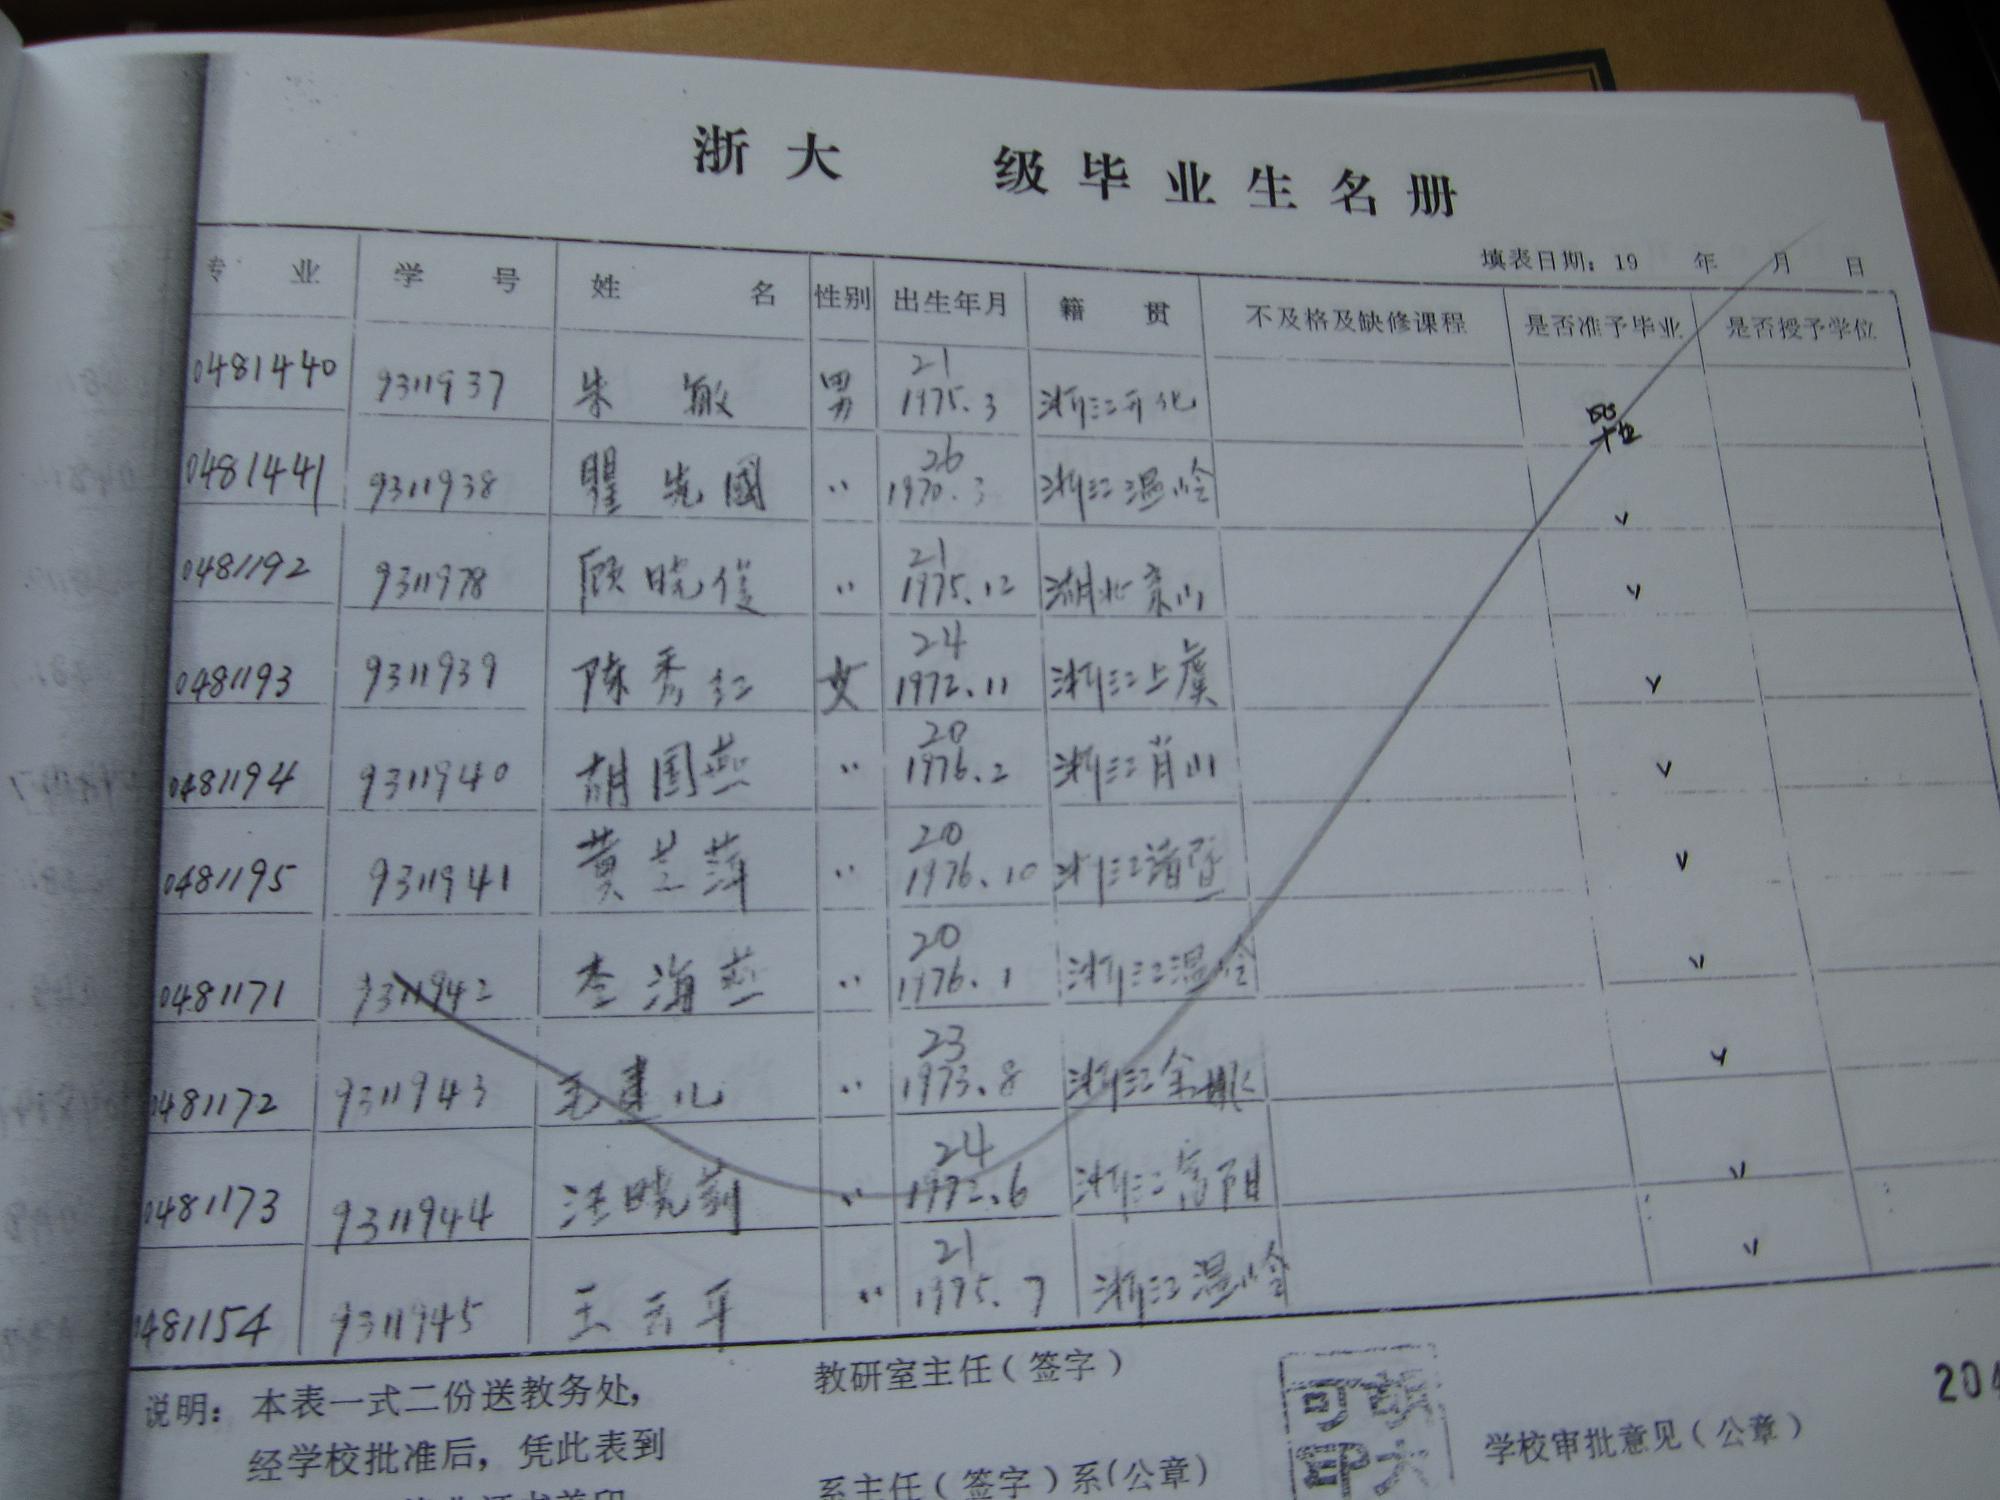 浙大 级毕业生名册
填表日期：19 年 月 日
专业 学号 姓名 性别 出生年月 籍贯 不及格及缺修课程 是否准予毕业 是否授予学位
21
0481440 9311937 朱敏 男 1975.3 浙江开化
26
0481441 9311938 瞿先國 〃 1970.3 浙江温岭 v
21
0481192 9311978 顾晓俊 〃 1975.12 湖北京山 v
24
0481193 9311939 陈秀红 女 1972.11 浙江上虞 v
20
0481194 9311940 胡国燕 〃 1976.2 浙江肖山 v
20
0481195 9311941 黄兰萍 〃 1976.10 浙江诸暨 v
20
0481171 9311942 李海燕 〃 1976.1 浙江温岭 v
23
0481172 9311943 毛建儿 〃 1973.8 浙江余姚 v
24
0481173 9311944 汪晓莉 〃 1972.6 浙江富阳 v
21
0481154 9311945 王云平 〃 1975.7 浙江温岭 v
说明：本表一式二份送教务处，
经学校批准后，凭此表到
教研室主任（签字）
系主任（签字）系（公章）
学校审批意见（公章）
204